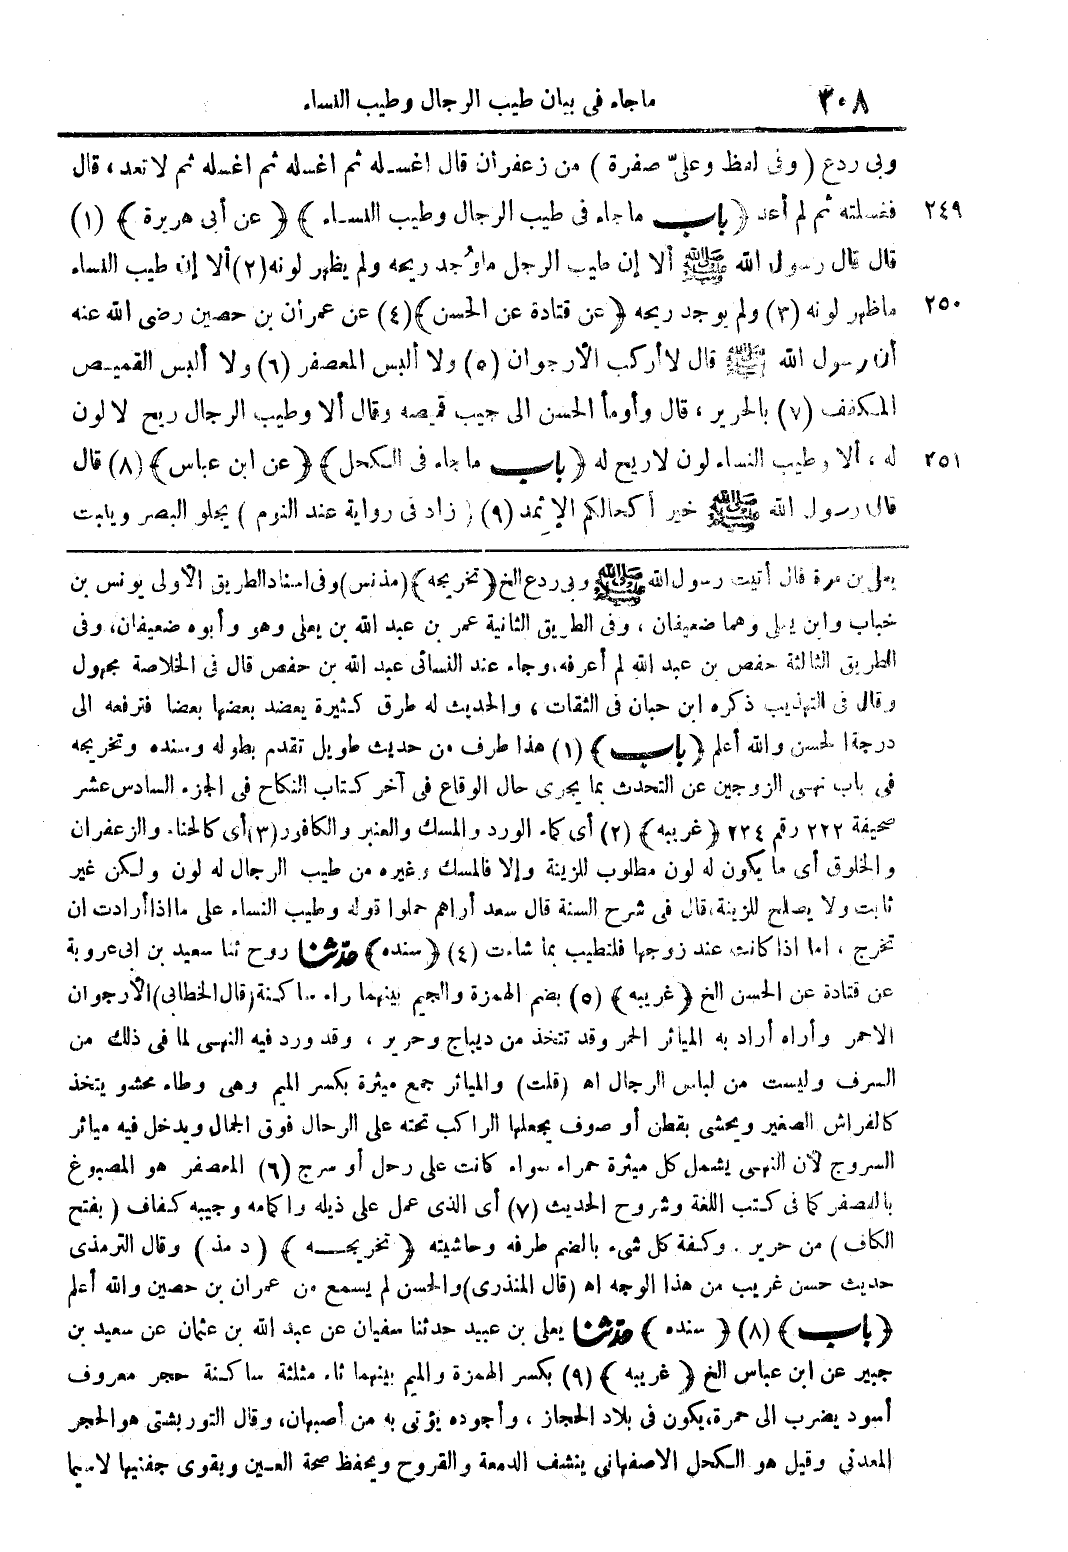 ٣٠٨ ماجاء فى بيان طيب الرجال وطيب النساء
وبى ردع ( وفى لفظ وعلىّ صفرة ) من زعفران قال اغسله ثم اغسله ثم اغسله ثم لا تعد ، قال
٢٤٩ فغسلته ثم لم أعد ﴿ باب ماجاء فى طيب الرجال وطيب النساء ﴾ ﴿ عن أبى هريرة ﴾ (١)
قال قال رسول الله ﷺ ألا إن طيب الرجل ماوُجد ريحه ولم يظهر لونه(٢)ألا إن طيب النساء
٢٥٠ ماظهر لونه (٣) ولم يوجد ريحه ﴿ عن قتادة عن الحسن ﴾(٤) عن عمران بن حصين رضى الله عنه
أن رسول الله ﷺ قال لاأركب الأرجوان (٥) ولا ألبس المعصفر (٦) ولا ألبس القميص
المكفف (٧) بالحرير ، قال وأومأ الحسن الى جيب قميصه وقال ألا وطيب الرجال ريح لا لون
٢٥١ له ، ألا وطيب النساء لون لاريح له ﴿ باب ماجاء فى الكحل ﴾ ﴿ عن ابن عباس ﴾ (٨) قال
قال رسول الله ﷺ خير أكحالكم الإثمد (٩) ( زاد فى رواية عند النوم ) يجلو البصر وينبت
يعلى بن مرة قال أتيت رسول الله ﷺ وبى ردع الخ ﴿ تخريجه ﴾ (مذنس) وفى اسناد الطريق الأولى يونس بن
خباب وابن يعلى وهما ضعيفان ، وفى الطريق الثانية عمر بن عبد الله بن يعلى وهو وأبوه ضعيفان، وفى
الطريق الثالثة حفص بن عبد الله لم أعرفه، وجاء عند النسائى عبد الله بن حفص قال فى الخلاصة مجهول
وقال فى التهذيب ذكره ابن حبان فى الثقات ، والحديث له طرق كثيرة يعضد بعضها بعضا فترفعه الى
درجة الحسن والله أعلم ﴿ باب ﴾ (١) هذا طرف من حديث طويل تقدم بطوله وسنده وتخريجه
فى باب نهى الزوجين عن التحدث بما يجرى حال الوقاع فى آخر كتاب النكاح فى الجزء السادس عشر
صحيفة ٢٢٢ رقم ٢٣٤ ﴿ غريبه ﴾ (٢) أى كماء الورد والمسك والعنبر والكافور (٣) أى كالحناء والزعفران
والخلوق أى ما يكون له لون مطلوب للزينة وإلا فالمسك وغيره من طيب الرجال له لون ولكن غير
ثابت ولا يصلح للزينة، قال فى شرح السنة قال سعد أراهم حملوا قوله وطيب النساء على مااذا أرادت ان
تخرج ، اما اذا كانت عند زوجها فلتطيب بما شاءت (٤) ﴿ سنده ﴾ حدّثنا روح ثنا سعيد بن ابى عروبة
عن قتادة عن الحسن الخ ﴿ غريبه ﴾ (٥) بضم الهمزة والجيم بينهما راء ساكنة (قال الخطابى) الأرجوان
الاحمر وأراه أراد به المياثر الحمر وقد تتخذ من ديباج وحرير ، وقد ورد فيه النهى لما فى ذلك من
السرف وليست من لباس الرجال اه (قلت) والمياثر جمع ميثرة بكسر الميم وهى وطاء محشو يتخذ
كالفراش الصغير ويحشى بقطن أو صوف يجعلها الراكب تحته على الرحال فوق الجمال ويدخل فيه مياثر
السروج لأن النهى يشمل كل ميثرة حمراء سواء كانت على رحل أو سرج (٦) المعصفر هو المصبوغ
بالعصفر كما فى كتب اللغة وشروح الحديث (٧) أى الذى عمل على ذيله واكمامه وجيبه كفاف ( بفتح
الكاف ) من حرير . وكفة كل شىء بالضم طرفه وحاشيته ﴿ تخريجه ﴾ ( د مذ ) وقال الترمذى
حديث حسن غريب من هذا الوجه اه (قال المنذرى) والحسن لم يسمع من عمران بن حصين والله أعلم
﴿ باب ﴾ (٨) ﴿ سنده ﴾ حدّثنا يعلى بن عبيد حدثنا سفيان عن عبد الله بن عثمان عن سعيد بن
جبير عن ابن عباس الخ ﴿ غريبه ﴾ (٩) بكسر الهمزة والميم بينهما ثاء مثلثة ساكنة حجر معروف
أسود يضرب الى حمرة، يكون فى بلاد الحجاز ، وأجوده يؤتى به من أصبهان، وقال التوربشتى هو الحجر
المعدنى وقيل هو الكحل الاصفهانى ينشف الدمعة والقروح ويحفظ صحة العين ويقوى جفنيها لاسيما